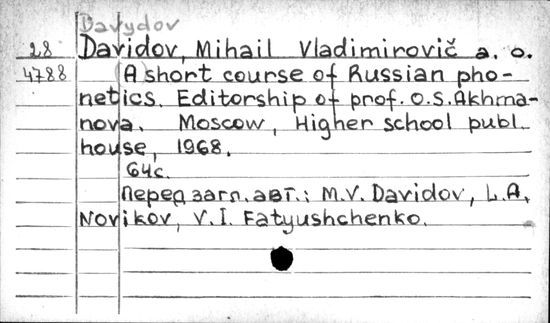 Davydov
28 Davidov, Mihail Vladimirovič a. o.
4788 (A) short course of Russian pho-
netics. Editorship of prof. O.S. Akhma-
nova. Moscow, Higher school publ.
house, 1968.
64с.
Перед загл. авт.: M.V. Davidov, L.A.
Novikov, V.I. Fatyushchenko.